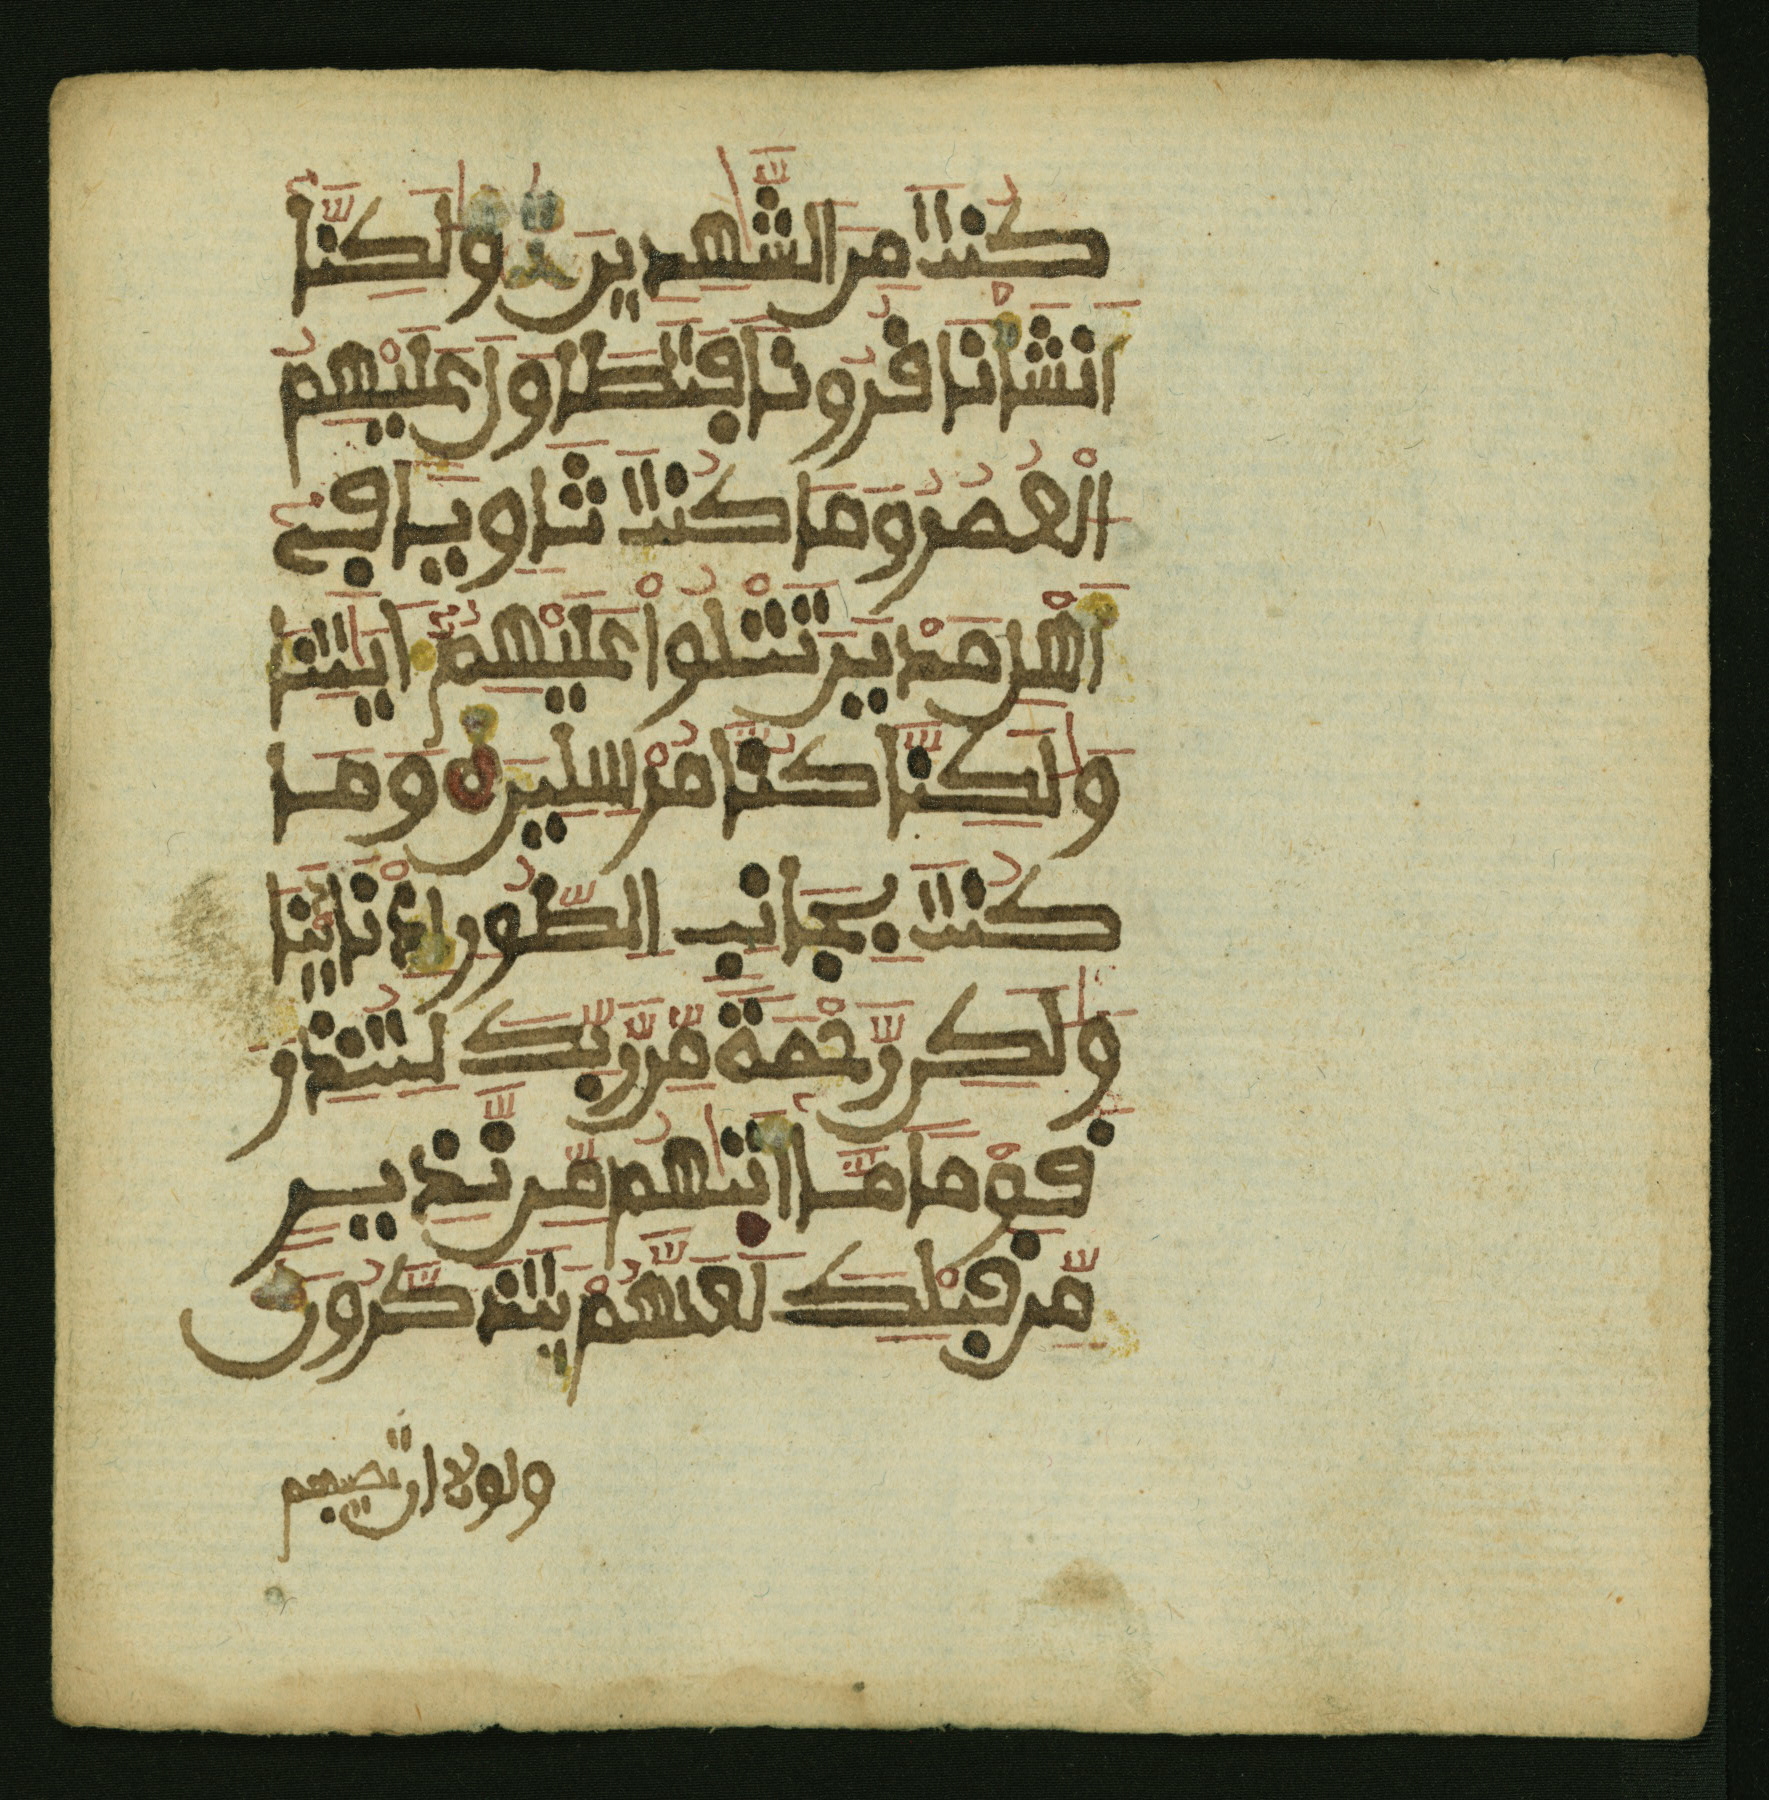 كنت مِنَ الشَّٰهِدِينَ وَلَٰكِنَّا
أَنشَأْنَا فُرُونًا فَتَطَاوَلَ عَلَيْهِمُ
الْعُمُرُ وَمَا كُنتَ ثَاوِيًا فِي
أَهْلِ مَدْيَنَ تَتْلُواْ عَلَيْهِمُ ءَايَٰتِنَا
وَلَٰكِنَّا كُنَّا مُرْسِلِينَ وَمَا
كُنتَ بِجَانِبِ الطُّورِ إِذْ نَادَيْنَا
وَلَٰكِن رَّحْمَةً مِّن رَّبِّكَ لِتُنذِرَ
قَوْمًا مَّا أَتَىٰهُم مِّن نَّذِيرٍ
مِّن قَبْلِكَ لَعَلَّهُمْ يَتَذَكَّرُونَ
ولولا ان تصيبهم